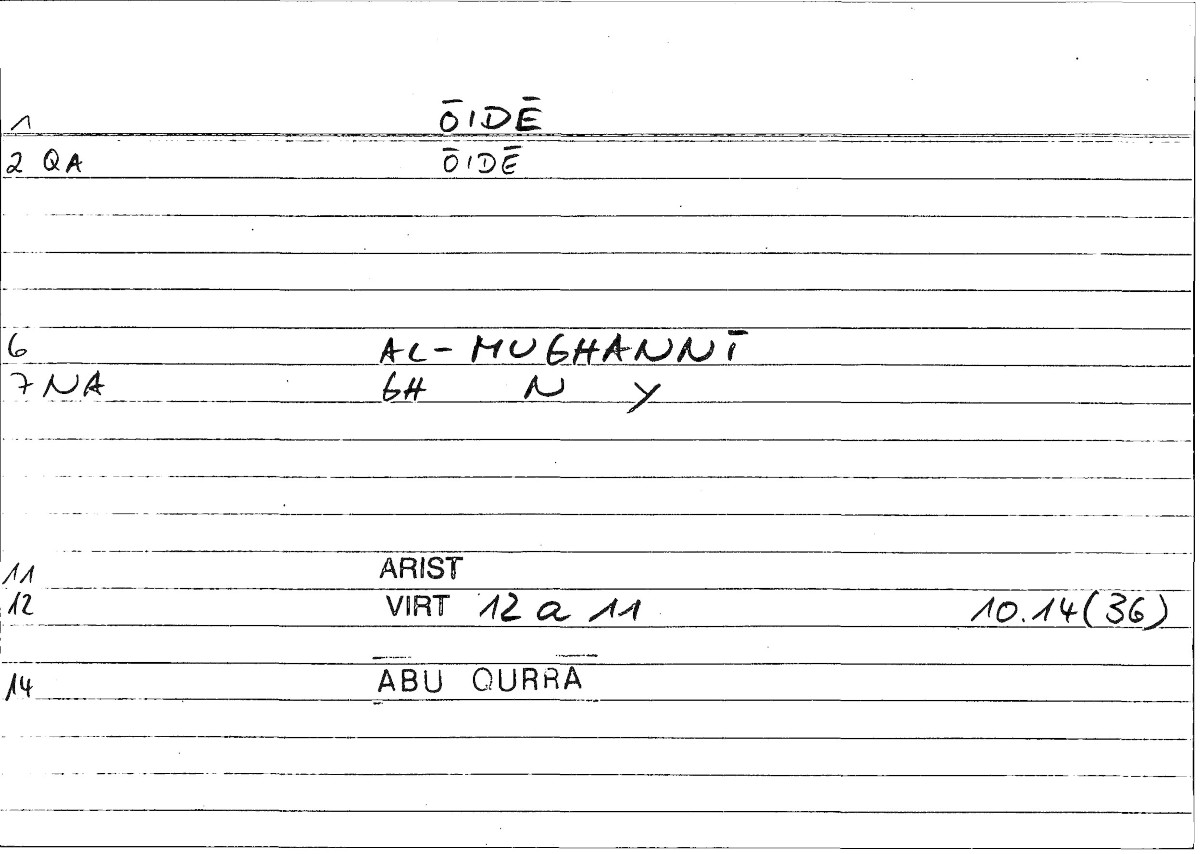 1 ŌIDĒ
2 QA ŌIDĒ
6 AL-MUGHANNĪ
7 NA GH N Y
11 ARIST
12 VIRT 12 a 11 10.14(36)
14 ABU QURRA